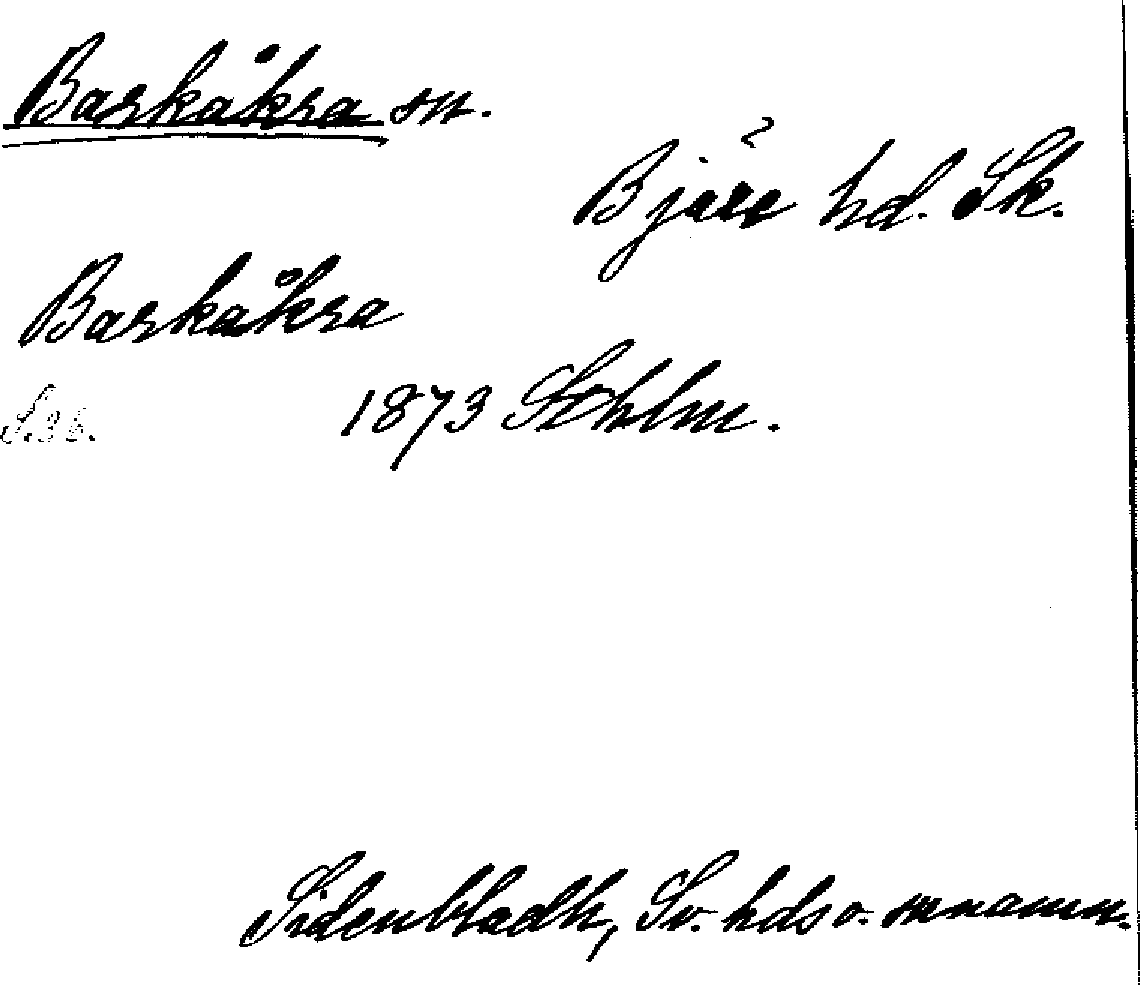 Barkåkra sn.
Bjäre hd. Sk.
Barkåkra
S. 36. 1873 Sthlm.
Sidenbladh, Sv. hds o. snnamn.